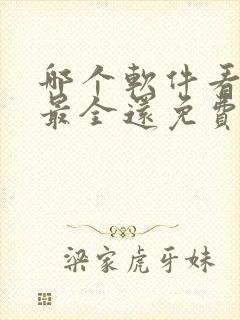 哪个軟件看
最全還免費
梁家虎牙妹